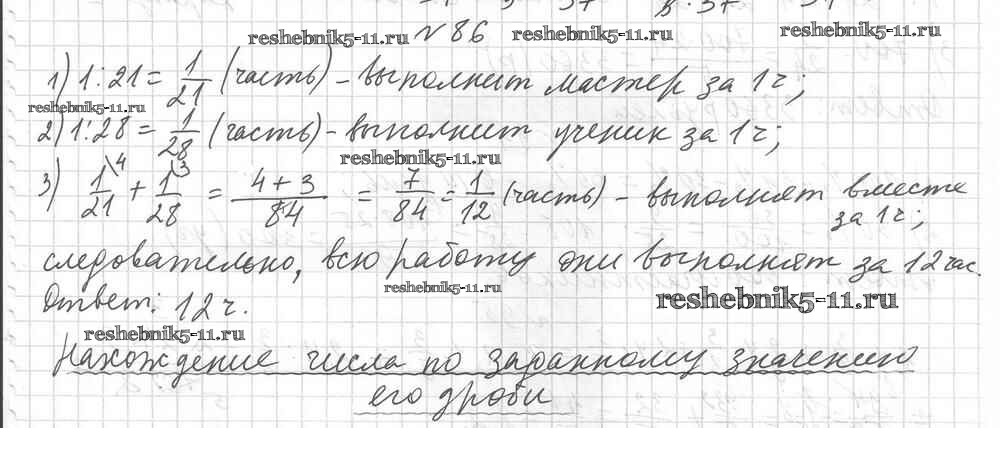 reshebnik5-11.ru № 86 reshebnik5-11.ru reshebnik5-11.ru
1) 1:21 = 1/21 (часть) – выполнит мастер за 1ч;
reshebnik5-11.ru
2) 1:28 = 1/28 (часть) – выполнит ученик за 1ч;
reshebnik5-11.ru
3) 1\4/21 + 1\3/28 = 4+3/84 = 7/84 = 1/12 (часть) – выполнят вместе
за 1ч;
следовательно, всю работу они выполнят за 12 час.
reshebnik5-11.ru
Ответ: 12 ч.
reshebnik5-11.ru
reshebnik5-11.ru
Нахождение числа по заданному значению
его дроби